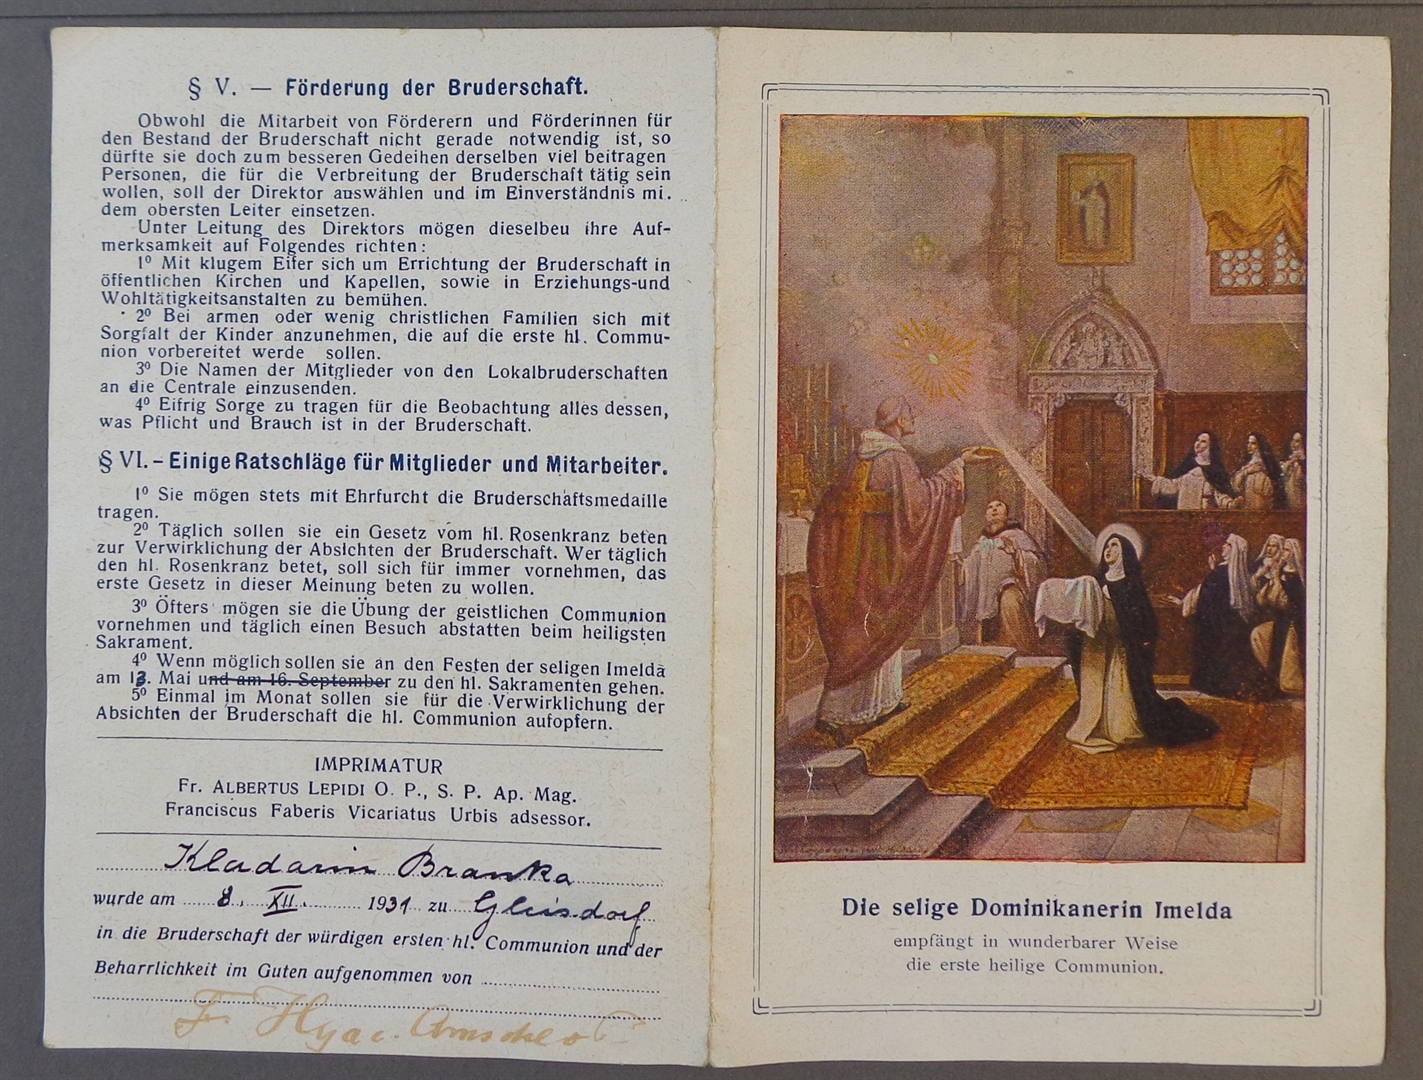 § V. — Förderung der Bruderschaft.
Obwohl die Mitarbeit von Förderern und Förderinnen für
den Bestand der Bruderschaft nicht gerade notwendig ist, so
dürfte sie doch zum besseren Gedeihen derselben viel beitragen
Personen, die für die Verbreitung der Bruderschaft tätig sein
wollen, soll der Direktor auswählen und im Einverständnis mi.
dem obersten Leiter einsetzen.
Unter Leitung des Direktors mögen dieselbeu ihre Auf-
merksamkeit auf Folgendes richten:
1º Mit klugem Eifer sich um Errichtung der Bruderschaft in
öffentlichen Kirchen und Kapellen, sowie in Erziehungs-und
Wohltätigkeitsanstalten zu bemühen.
2º Bei armen oder wenig christlichen Familien sich mit
Sorgfalt der Kinder anzunehmen, die auf die erste hl. Commu-
nion vorbereitet werde sollen.
3º Die Namen der Mitglieder von den Lokalbruderschaften
an die Centrale einzusenden.
4º Eifrig Sorge zu tragen für die Beobachtung alles dessen,
was Pflicht und Brauch ist in der Bruderschaft.
§ VI. - Einige Ratschläge für Mitglieder und Mitarbeiter.
1º Sie mögen stets mit Ehrfurcht die Bruderschaftsmedaille
tragen.
2º Täglich sollen sie ein Gesetz vom hl. Rosenkranz beten
zur Verwirklichung der Absichten der Bruderschaft. Wer täglich
den hl. Rosenkranz betet, soll sich für immer vornehmen, das
erste Gesetz in dieser Meinung beten zu wollen.
3º Öfters mögen sie die Übung der geistlichen Communion
vornehmen und täglich einen Besuch abstatten beim heiligsten
Sakrament.
4º Wenn möglich sollen sie an den Festen der seligen Imelda
am 13. Mai und am 16. September zu den hl. Sakramenten gehen.
5º Einmal im Monat sollen sie für die Verwirklichung der
Absichten der Bruderschaft die hl. Communion aufopfern.
IMPRIMATUR
Fr. ALBERTUS LEPIDI O. P., S. P. Ap. Mag.
Franciscus Faberis Vicariatus Urbis adsessor.
Kladarin Branka
wurde am 8. XII. 1931 zu Gleisdorf
in die Bruderschaft der würdigen ersten hl. Communion und der
Beharrlichkeit im Guten aufgenommen von
F. Hyac.
Die selige Dominikanerin Imelda
empfängt in wunderbarer Weise
die erste heilige Communion.